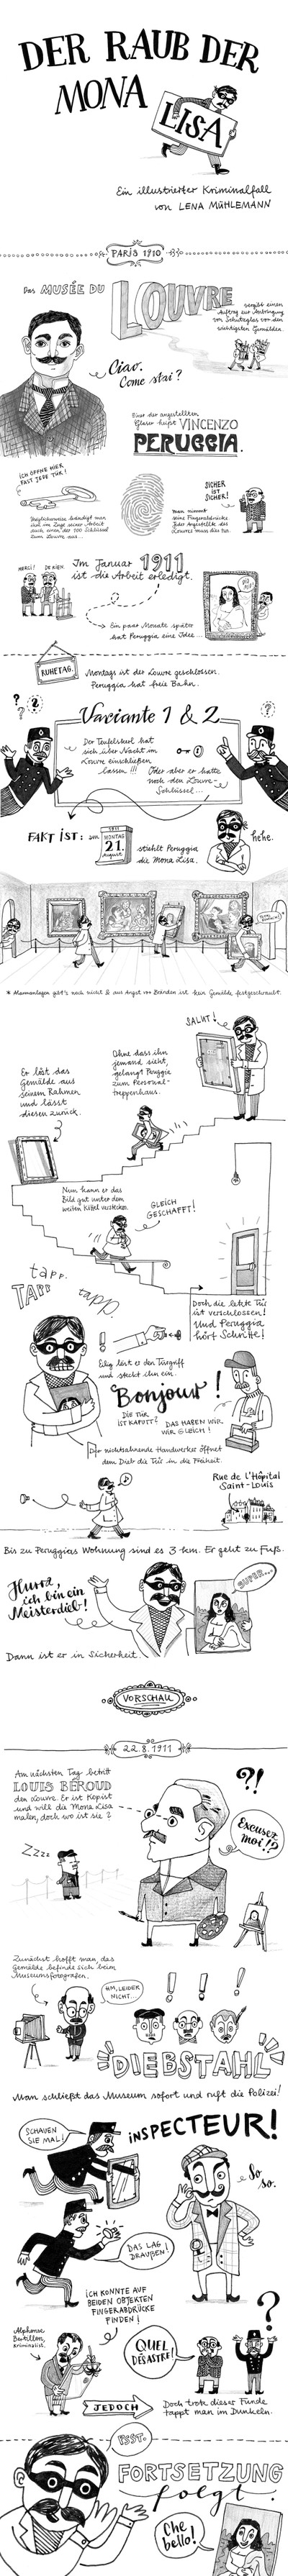 DER RAUB DER
MONA
LISA
Ein illustrierter Kriminalfall
von LENA MÜHLEMANN
PARIS 1910
Das MUSÉE DU
LOUVRE
vergibt einen
Auftrag zur Anbringung
von Schutzglas vor den
wichtigsten Gemälden.
Ciao.
Come stai?
Einer der angestellten
Glaser heißt VINCENZO
PERUGGIA.
ICH ÖFFNE HIER
FAST JEDE TÜR!
SICHER
IST
SICHER!
sich im Zuge seiner Arbeit
auch einen der 100 Schlüssel
zum Louvre aus...
Man nimmt
seine Fingerabdrücke.
Jeder Angestellte des
Louvre muss das tun.
MERCI!
DE RIEN.
Im Januar 1911
ist die Arbeit erledigt.
Ein paar Monate später
hat Peruggia eine Idee...
RUHETAG.
Montags ist der Louvre geschlossen.
Peruggia hat freie Bahn.
Variante 1 & 2
Der Teufelskerl hat
sich über Nacht im
Louvre einschließen
lassen!!! Oder aber er hatte
noch den Louvre-
Schlüssel...
FAKT IST: am
1911
MONTAG
21.
August
stiehlt Peruggia
die Mona Lisa.
hehe.
* Alarmanlagen gibt's noch nicht & aus Angst vor Bränden ist kein Gemälde festgeschraubt.
SALUT!
Er löst das
Gemälde aus
seinem Rahmen
und lässt
diesen zurück.
Ohne dass ihn
jemand sieht,
gelangt Peruggia
zum Personal-
treppenhaus.
Nun kann er das
Bild gut unter dem
weiten Kittel verstecken.
GLEICH
GESCHAFFT!
tapp.
TAPP
tapp
Doch die letzte Tür
ist verschlossen!
Und Peruggia
hört Schritte!
Eilig löst er den Türgriff
und steckt ihn ein.
Bonjour!
DIE TÜR
IST KAPUTT?
DAS HABEN WIR
WIR GLEICH!
Der nichtsahnende Handwerker öffnet
dem Dieb die Tür in die Freiheit.
Rue de l'Hôpital
Saint-Louis
Bis zu Peruggias Wohnung sind es 3 km. Er geht zu Fuß.
Hurra,
ich bin ein
Meisterdieb!
SUPER...
Dann ist er in Sicherheit.
VORSCHAU
22.8.1911
Am nächsten Tag betritt
LOUIS BÉROUD
den Louvre. Er ist Kopist
und will die Mona Lisa
malen, doch wo ist sie?
?!
Excusez
moi!?
Zzzz
Zunächst hofft man, das
Gemälde befinde sich beim
Museumsfotografen.
HM, LEIDER
NICHT...
DIEBSTAHL
Man schließt das Museum sofort und ruft die Polizei!
INSPECTEUR!
SCHAUEN
SIE MAL!
So
so.
DAS LAG
DRAUßEN!
ICH KONNTE AUF
BEIDEN OBJEKTEN
FINGERABDRÜCKE
FINDEN!
Alphonse
Bertillon,
Kriminalist.
QUEL
DÉSASTRE!
JEDOCH
Doch trotz dieser Funde
tappt man im Dunkeln.
PSST.
FORTSETZUNG
folgt.
Che
bello!